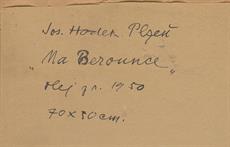 Jos. Hodek Plzeň
„Na Berounce"
olej z r. 1950
70x50cm.